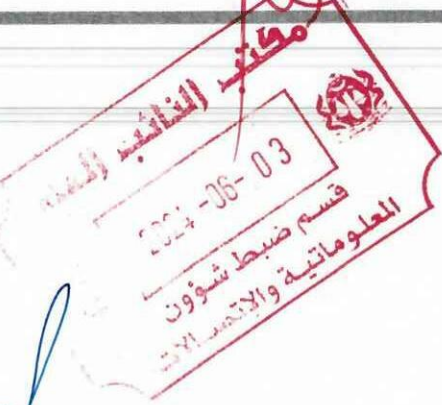 مكتب النائب
2024-06-03
قسم ضبط شؤون
المعلوماتية والاتصالات